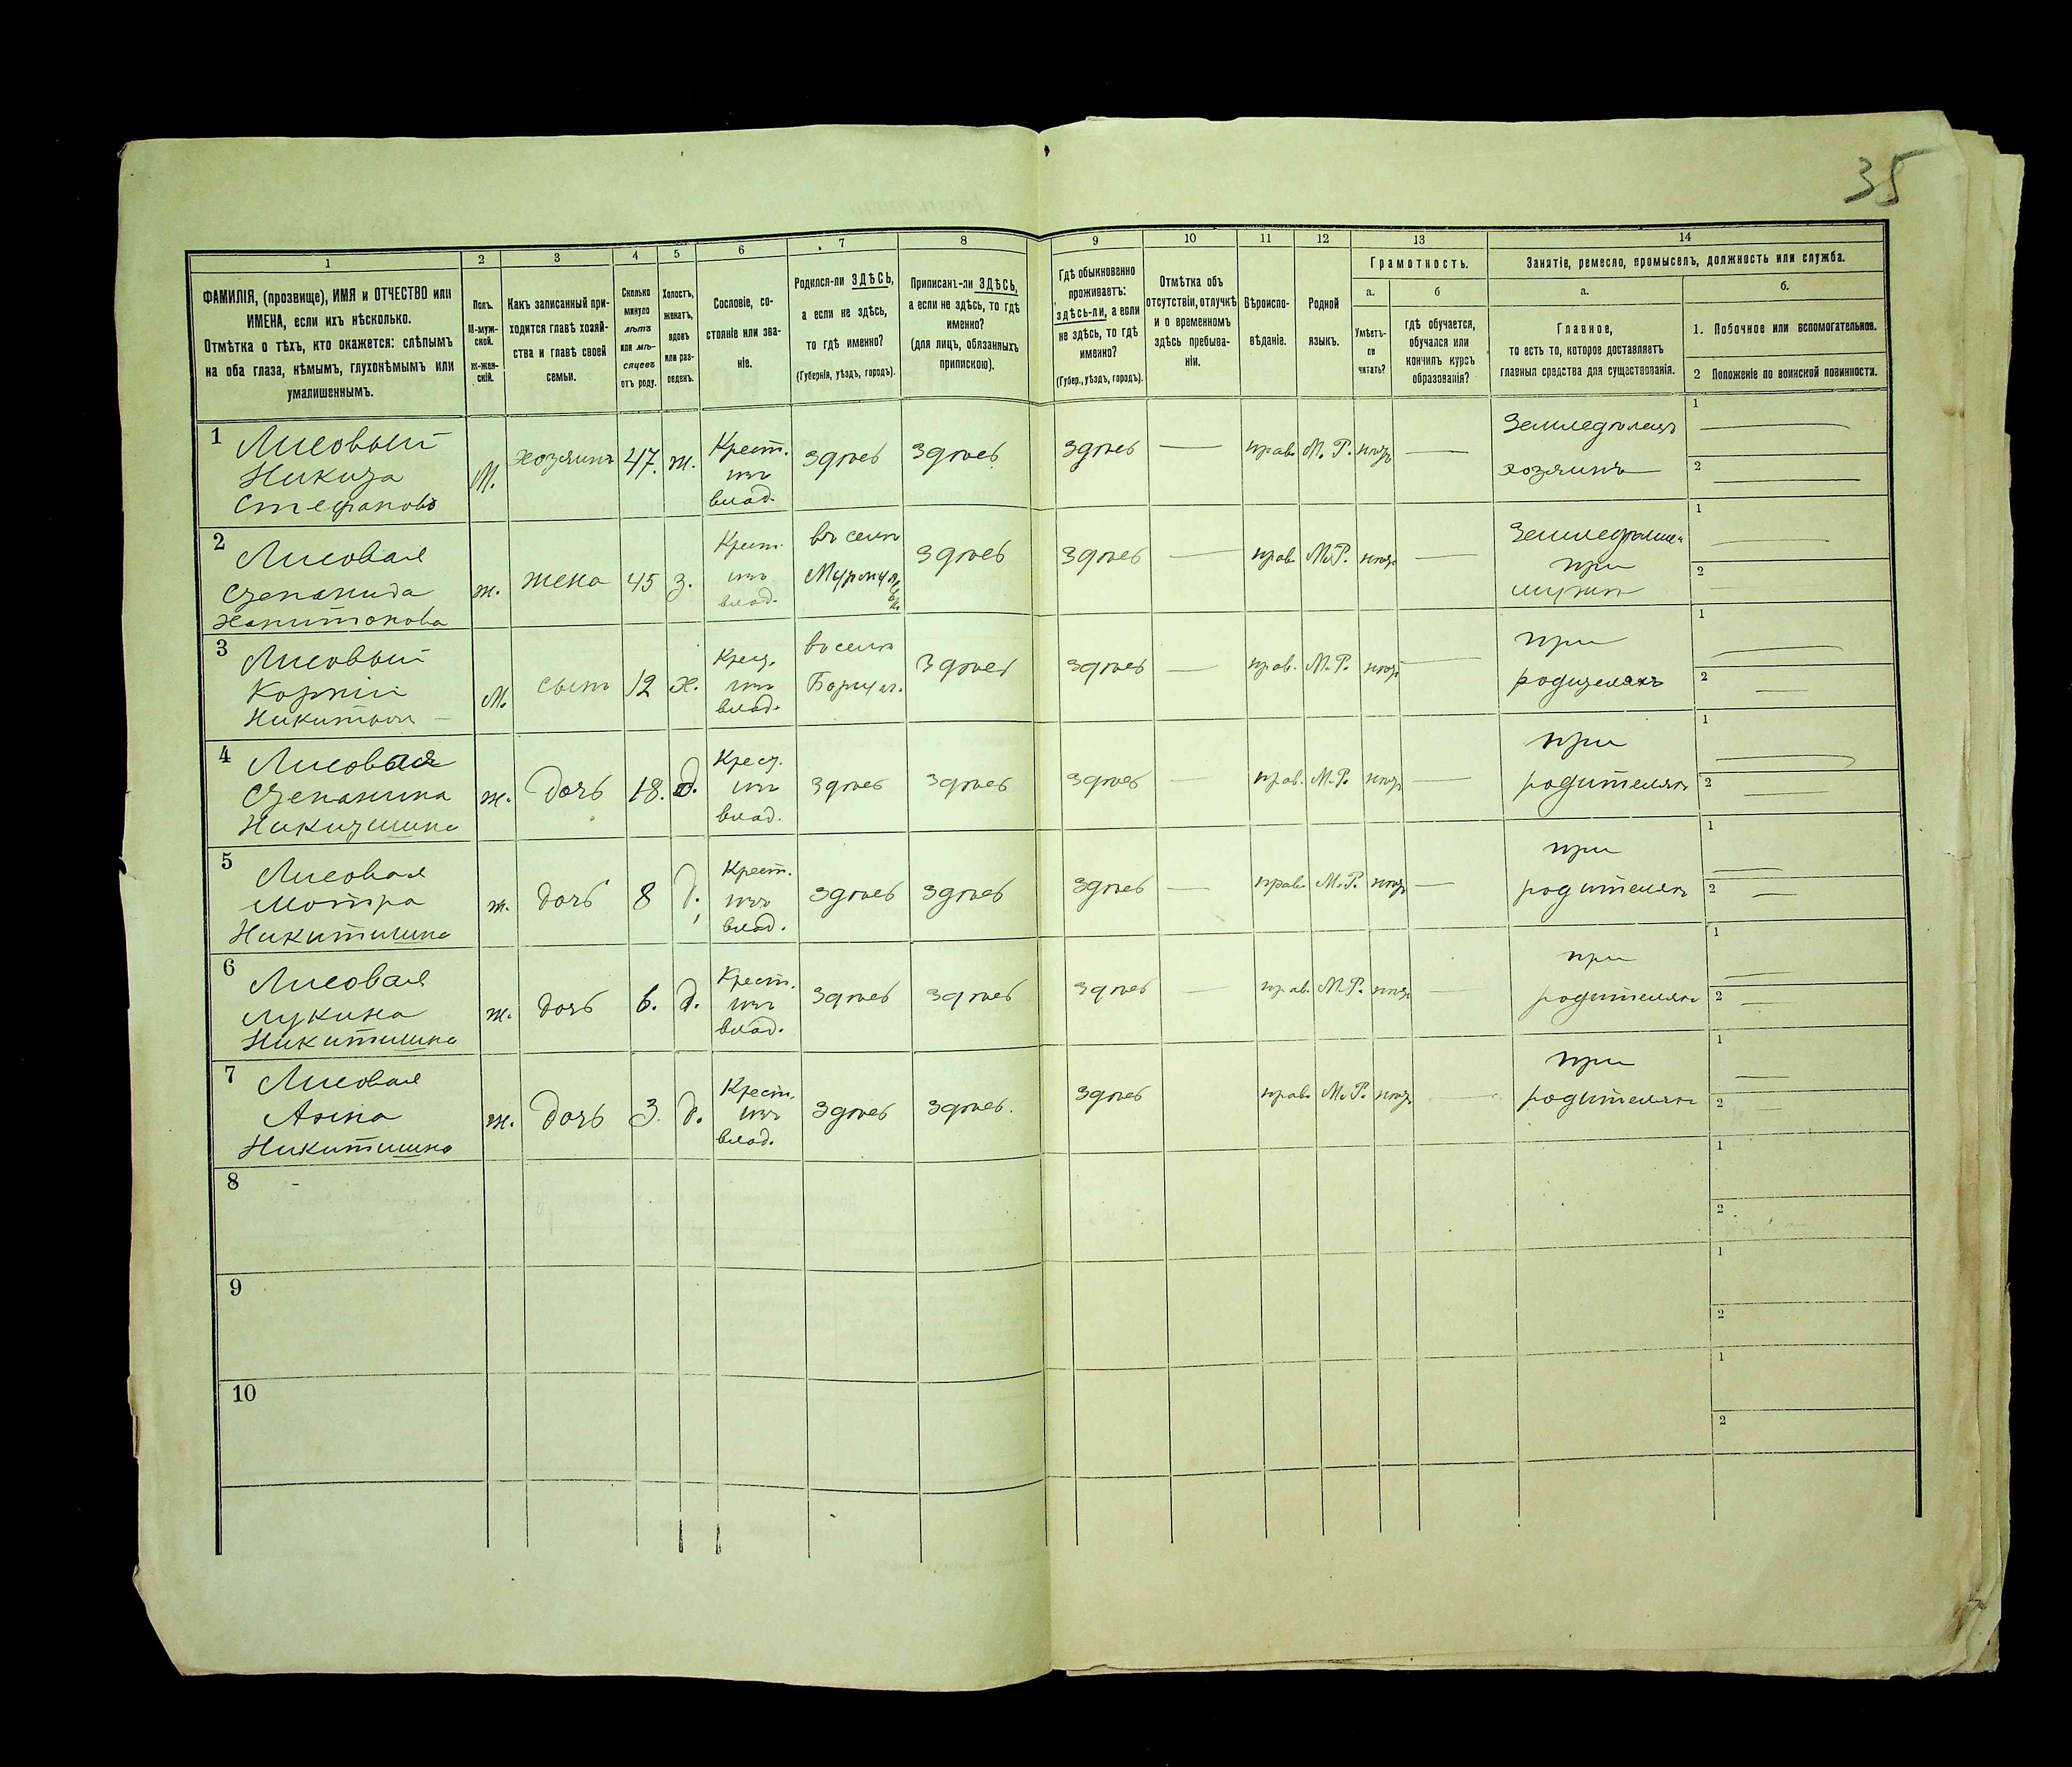 35
1 2 3 4 5 6 7 8 9 10 11 12 13 14
ФАМИЛІЯ, (прозвище), ИМЯ и ОТЧЕСТВО или
ИМЕНА, если ихъ нѣсколько.
Отмѣтка о тѣхъ, кто окажется: слѣпымъ
на оба глаза, нѣмымъ, глухонѣмымъ или
умалишеннымъ.
Полъ.
М-муж-
ской.
Ж-жен-
скій.
Какъ записанный при-
ходится главѣ хозяй-
ства и главѣ своей
семьи.
Сколько
минуло
лѣтъ
или мѣ-
сяцевъ
отъ роду.
Холостъ,
женатъ,
вдовъ
или раз-
веденъ.
Сословіе, со-
стояніе или зва-
ніе.
Родился-ли ЗДѢСЬ,
а если не здѣсь,
то гдѣ именно?
(Губернія, уѣздъ, городъ).
Приписанъ-ли ЗДѢСЬ,
а если не здѣсь, то гдѣ
именно?
(для лицъ, обязанныхъ
припискою).
Гдѣ обыкновенно
проживаетъ:
здѣсь-ли, а если
не здѣсь, то гдѣ
именно?
(Губер., уѣздъ, городъ).
Отмѣтка объ
отсутствіи, отлучкѣ
и о временномъ
здѣсь пребыва-
ніи.
Вѣроиспо-
вѣданіе.
Родной
языкъ.
Грамотность.
а.
Умѣетъ-
ли
читать?
б
гдѣ обучается,
обучался или
кончилъ курсъ
образованія?
Занятіе, ремесло, промыселъ, должность или служба.
а.
Главное,
то есть то, которое доставляетъ
главныя средства для существованія.
б.
1. Побочное или вспомогательное.
2 Положеніе по воинской повинности.
1 Лисовый
Никита
Стефановъ
М.
хозяинъ
47.
ж.
Крест.
изъ
влад.
здѣсь
здѣсь
здѣсь
прав.
М. Р.
Земледѣлецъ
хозяинъ
1
2
2 Лисовая
Степанида
Харитонова
ж.
жена
45
з.
Крест.
изъ
влад.
въ селѣ
здѣсь
здѣсь
прав.
М.Р.
при
мужѣ
1
2
3 Лисовый
Корній
М.
сынъ
12
х.
Крест.
изъ
влад.
въ селѣ
здѣсь
здѣсь
прав.
М.Р.
при
родителяхъ
1
2
4 Лисовая
Степанида
Никитина
ж.
дочь
18.
д.
Крест.
изъ
влад.
здѣсь
здѣсь
здѣсь
прав.
М.Р.
при
родителяхъ
1
2
5 Лисовая
Мотря
Никитина
ж.
дочь
8
д.
Крест.
изъ
влад.
здѣсь
здѣсь
здѣсь
прав.
М.Р.
при
родителяхъ
1
2
6 Лисовая
Лукина
Никитина
ж.
дочь
6.
д.
Крест.
изъ
влад.
здѣсь
здѣсь
здѣсь
прав.
М.Р.
при
родителяхъ
1
2
7 Лисовая
Анна
Никитина
ж.
дочь
3.
д.
Крест.
изъ
влад.
здѣсь
здѣсь.
здѣсь
прав.
М.Р.
при
родителяхъ
1
2
8
1
2
9
1
2
10
1
2